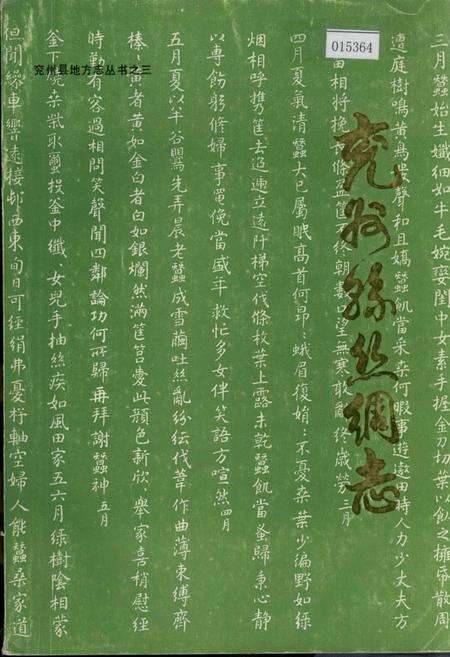 015364
兖州县地方志丛书之三
兖州丝绸志
三月蚕始生纤细如牛毛婉娈闺中女素手握金刀切葉以飼之擁帚散周
遭庭树鳴黄鳥
聲和且嬌蚕飢當采桑何暇事遊遨田時人力少丈夫方
田相将挽
無寒敢辭終歳勞三月
四月夏氣清蠶大已屬眠高首何昂昂蛾眉復娟娟不憂桑葉少徧野如緑
烟相呼携筐去迢遞立遠阡梯空伐條枚葉上露未乾蠶飢當蚤歸秉心静
以專飭躬修婦事黽俛當盛年救忙多女伴笑語方喧然四月
五月夏以半谷鶯先弄晨老蠶成雪繭吐絲亂紛紜伐葦作曲薄束縛齊
榛
者黄如金白者白如銀爛然满筐筥愛此顏色新欣欣舉家喜稍慰經
時勤有客過相問笑聲聞四鄰論功何所歸再拜謝蠶神五月
釜下燒桑柴取繭投釜中纖纖女兒手抽絲疾如風田家五六月緑樹陰相蒙
但聞繰車響遠接邨西東旬日可經絹弗憂杼軸空婦人能蠶桑家道